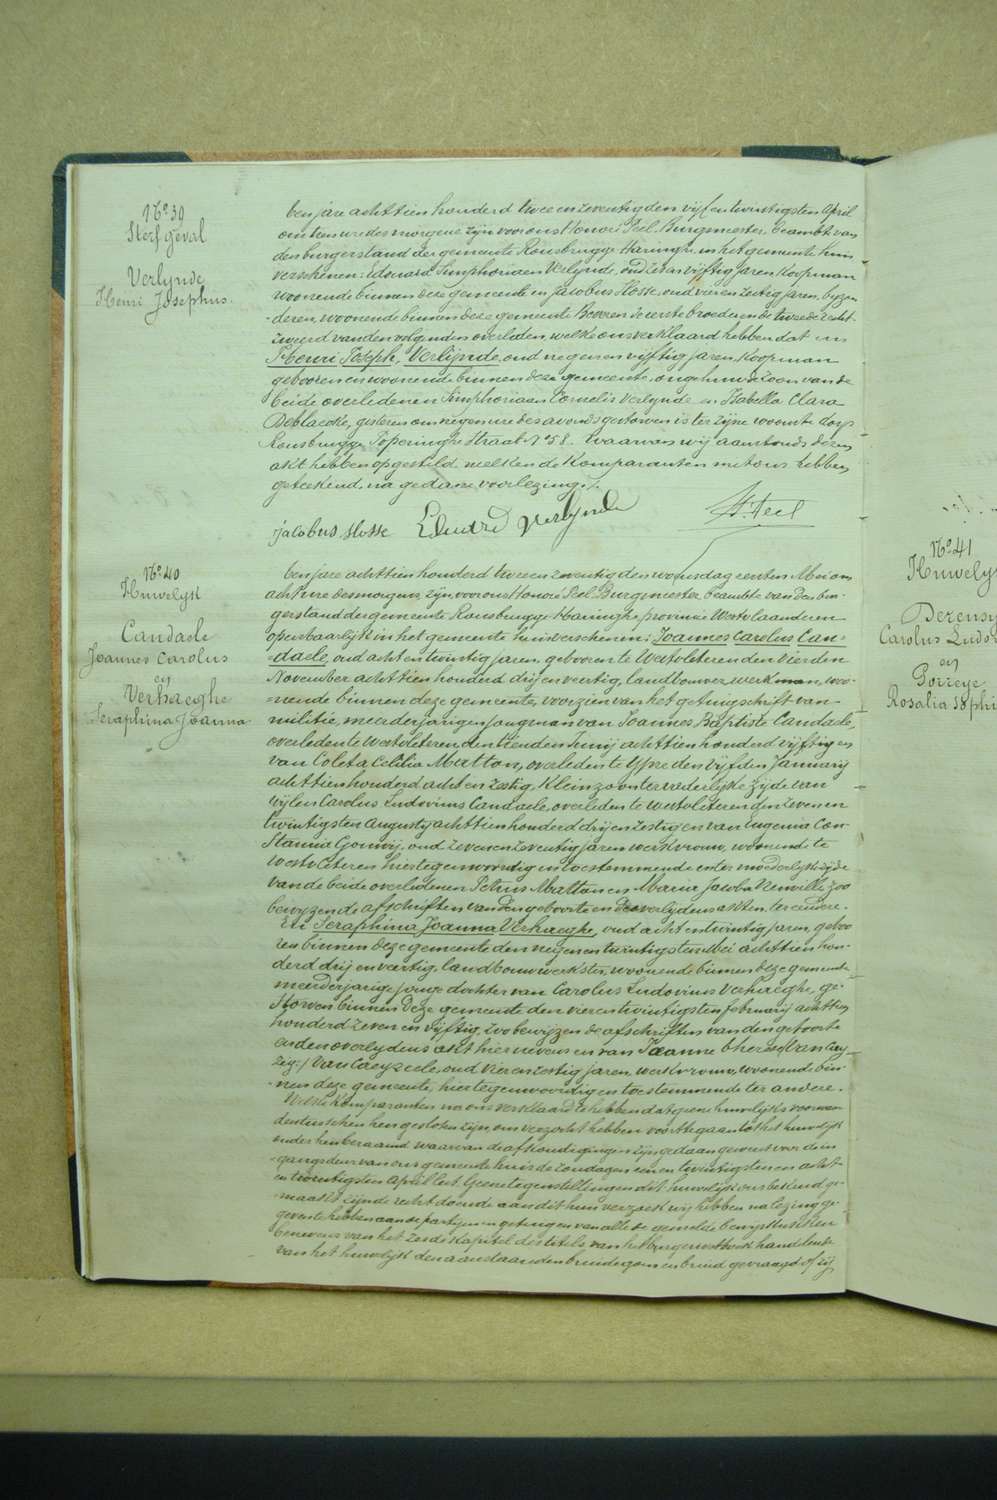 No 39
Sterfgeval
Verlynde
Henri Josephus.
Ten jare achttien honderd twee en zeventig den vijf en twintigsten April
om tien ure des morgens zijn voor ons Honoré Peel Burgmeester, beambte van
den burgerstand der gemeente Rousbrugge Haringhe, in het gemeente huis
verschenen: Edouard Simphoriaen Verlynde, oud zes en vijftig jaren, koopman
woonende binnen deze gemeente en Jacobus Hosse, oud vier en zestig jaren, byzon-
deren, woonende binnen deze gemeente Beveren de eerste broeder en de tweede recht-
zweerd van den volgenden overleden, welke ons verklaard hebben dat
Henri Joseph, Verlijnde, oud negen en vijftig jaren, koopman
geboren en woonende binnen deze gemeente, ongehuwde zoon van de
beide overledenen Simphoriaan Cornelis Verlynde en Isabella Clara
Deblaecke, gisteren om negen ure des avonds gestorven is ter zijne woonste dorp
Rousbrugge, Poperinghe Straat No 58. Waarvan wij aanstonds dezen
akt hebben opgesteld welken de Komparanten met ons hebben
geteekend, na gedane voorlezing./.
Jacobus Hosse Eduard Verlynde H. Peel
No 40
Huwelyk
Candaele
Joannes Carolus
en
Verhaeghe
Seraphina Joanna
Ten jare achttien honderd twee en zeventig den woensdag eersten Mei om
acht ure des morgens, zijn voor ons Honoré Peel Burgmeester, beambte van den bur-
gerstand der gemeente Rousbrugge-Haringhe, provincie Westvlaanderen
openbaarlyk in het gemeente huis verschenen: Joannes Carolus Can-
daele, oud acht en twintig jaren, geboren te Westvleteren den vierden
November achttien honderd drij en veertig, landbouwerwerkman, woo-
nende binnen deze gemeente, voorzien van het getuigschrift van
militie, meerderjarigen jongman van Joannes Baptiste Candaele,
overleden te Westvleteren den tienden Junij achttien honderd vijftig en
van Coleta Cecilia Matton, overleden te Ypre den vijfden January
achttien honderd acht en zestig, kleinzoon ter vaderlyke zijde van
wylen Carolus Ludovicus Candaele, overleden te Westvleteren den zeven en
twintigsten Augusty achttien honderd drij en zestig en van Eugenia Con-
stantia Gouwij, oud zeven en zeventig jaren werkvrouw, woonende te
Westvleteren hier tegenwoordig en toestemmende en ter moederlyke zijde
van de beide overledenen Petrus Matton en Maria Jacoba zoo
bewyzen de afschriften van den geboorte en de overlydens akten, ter eendere.
En Seraphina Joanna Verhaeghe, oud acht en twintig jaren, geboo
ren binnen deze gemeente den negen en twintigsten Mei achttien hon-
derd drij en veertig, landbouwwerkster, woonende binnen deze gemeente
meerderjarige jonge dochter van Carolus Ludovicus Verhaeghe, ge-
storven binnen deze gemeente den vier en twintigsten february achttien
honderd zeven en vijftig, zoo bewyzen de afschriften van den geboorte
en den overlydens akt hiernevens en van Joanne Therese (Van Cay
zig:) Van Caeyzeele, oud vier en zestig jaren, werkvrouw, woonende bin-
nen deze gemeente, hier tegenwoordig en toestemmende ter andere.
Welke Komparanten na ons verklaard te hebben dat geene huwelyks voorwaar
den tusschen hen gesloten zijn, ons verzocht hebben voort te gaan tot het huwelijk
onder hen beraamd waarvan de afkondigingen zijn gedaan geweest voor den in
gangs deur van ons gemeente huis de zondagen een en twintigsten en acht-
en twintigsten April lest. Geene tegenstellingen dit huwelijk ons bekend ge-
maakt zijnde recht doende aan dit hun verzoek wij hebben na lezing ge-
geven te hebben aan de partijen en getuigen van alle de gemelde bewijsstukken
benevens van het zesde kapittel des titels van het burger wetboek handelende
van het huwelijk den aanstaanden bruidegom en bruid gevraagd of zij
No 41
Huwelyk
Dezensy
Carolus Ludov
en
Porreye
Rosalia Sophi